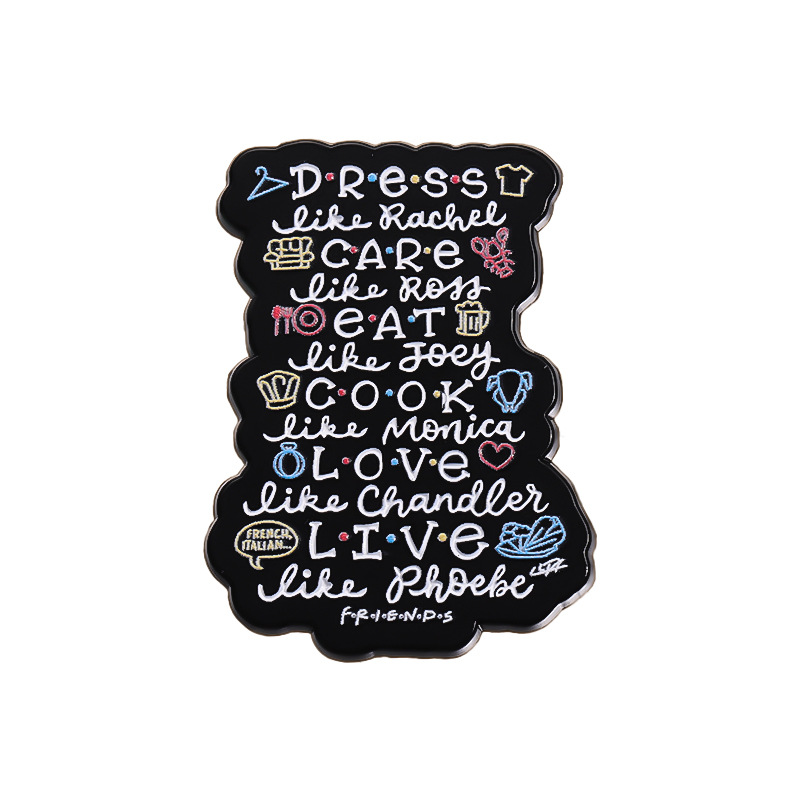 D·R·e·S·S
like Rachel
C·A·R·e
like Ross
e·A·T
like Joey
C·O·O·K
like Monica
L·O·V·e
like Chandler
FRENCH,
ITALIAN...
L·I·V·e
like Phoebe
F·R·I·E·N·D·S